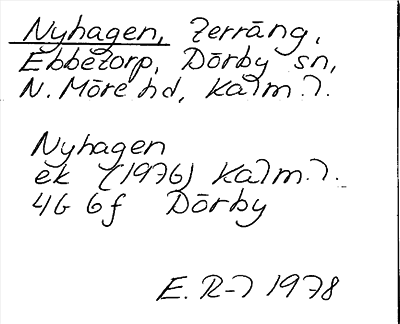 Nyhagen, Terräng,
Ebbetorp, Dörby sn,
N. Möre hd, Kalm.l.
Nyhagen
ek (1976) Kalm.l.
4G 6f Dörby
E. R-l 1978